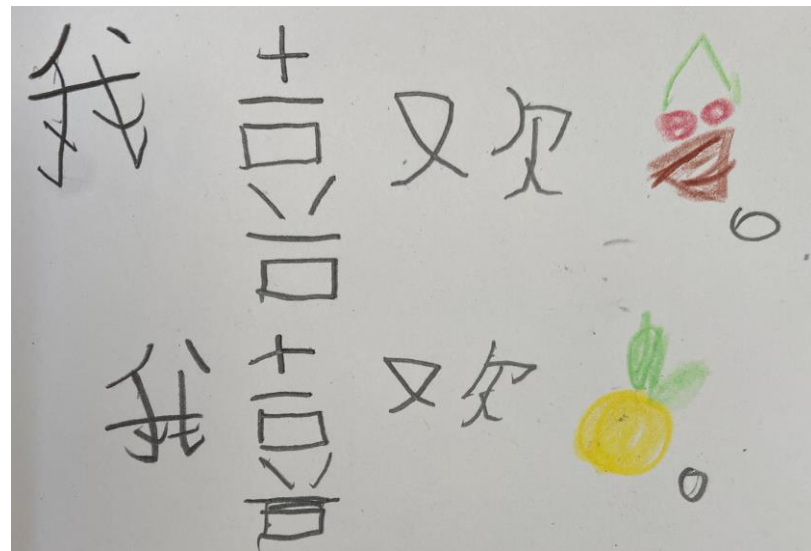 我喜欢。
我喜欢。